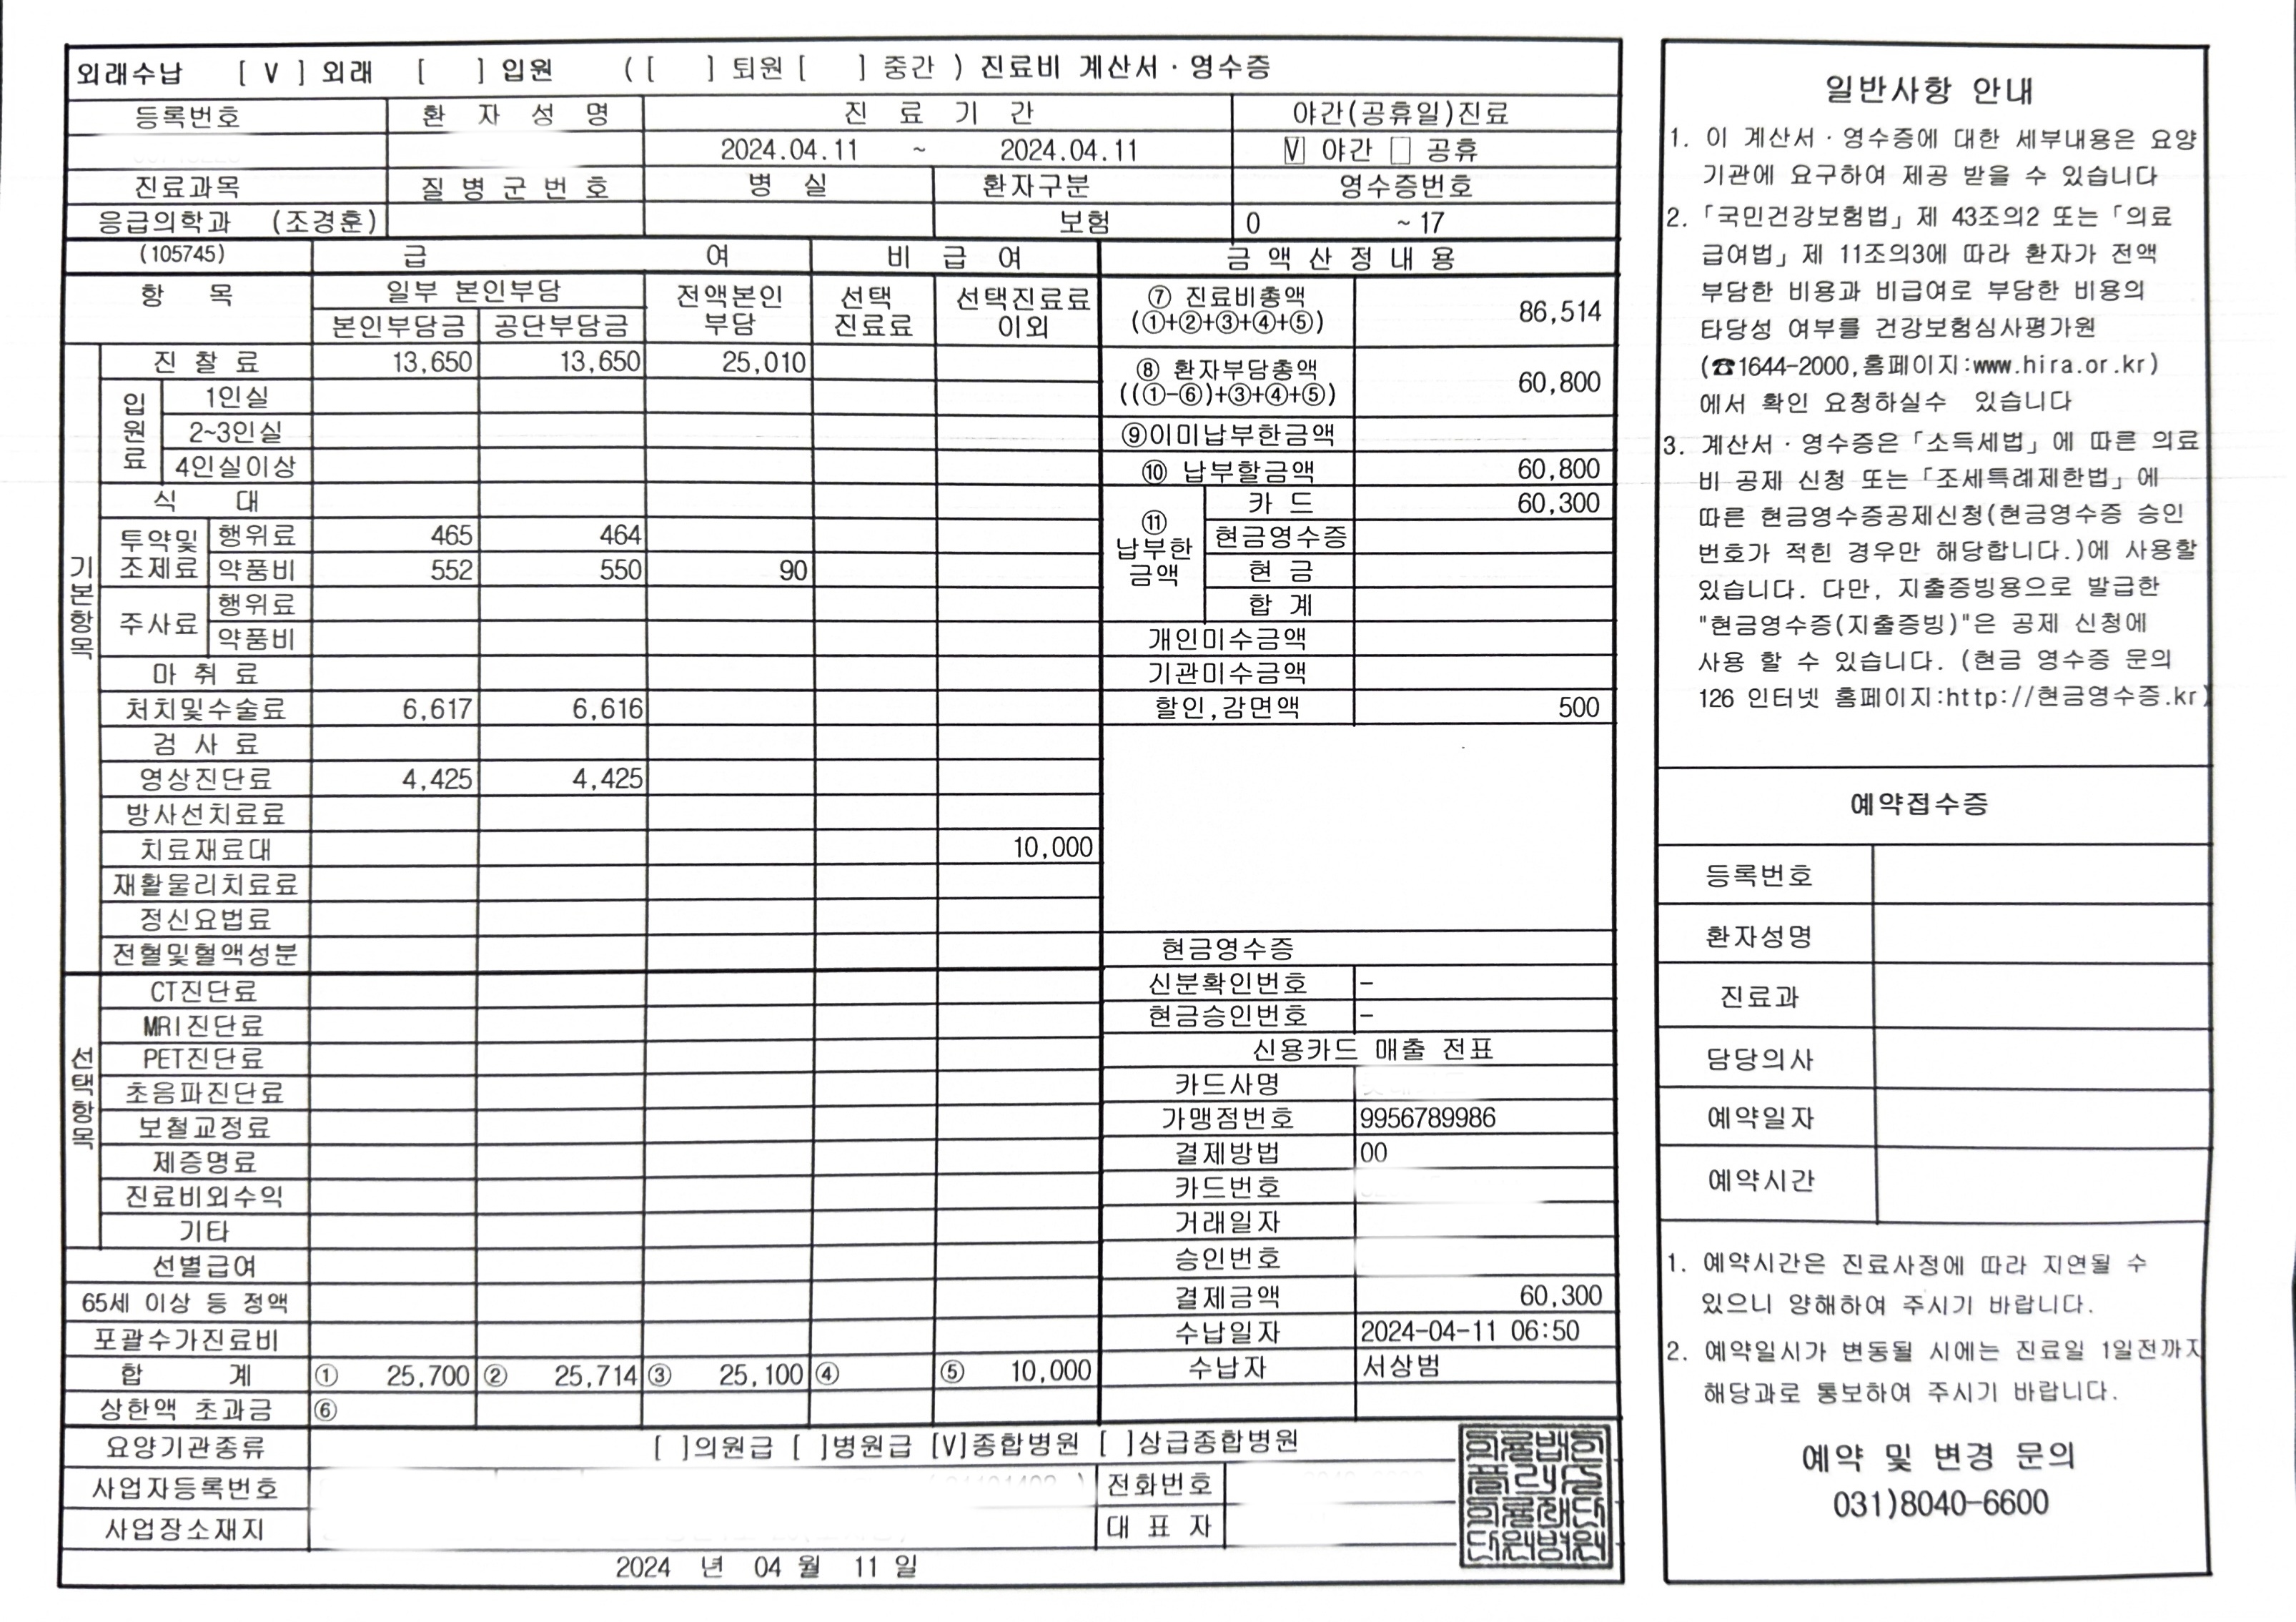 외래수납 [ V ] 외래 [ ] 입원 ( [ ] 퇴원 [ ] 중간 ) 진료비 계산서 · 영수증
등록번호 환 자 성 명 진 료 기 간 야간(공휴일)진료
2024.04.11 ~ 2024.04.11 [V] 야간 [ ] 공휴
진료과목 질 병 군 번 호 병 실 환자구분 영수증번호
응급의학과 (조경훈) 보험 0 ~ 17
(105745) 급 여 비 급 여 금 액 산 정 내 용
항 목 일부 본인부담 전액본인 부담 선택 진료료 선택진료료 이외 ⑦ 진료비총액 86,514
본인부담금 공단부담금 (①+②+③+④+⑤)
기본항목
진 찰 료 13,650 13,650 25,010 ⑧ 환자부담총액 60,800
입원료 1인실 ((①-⑥)+③+④+⑤)
2~3인실 ⑨이미납부한금액
4인실이상 ⑩ 납부할금액 60,800
식 대 ⑪ 납부한 금액 카 드 60,300
투약및 조제료 행위료 465 464 현금영수증
약품비 552 550 90 현 금
주사료 행위료 합 계
약품비 개인미수금액
마 취 료 기관미수금액
처치및수술료 6,617 6,616 할인,감면액 500
검 사 료
영상진단료 4,425 4,425
방사선치료료
치료재료대 10,000
재활물리치료료
정신요법료
전혈및혈액성분 현금영수증
선택항목
CT진단료 신분확인번호 -
MRI진단료 현금승인번호 -
PET진단료 신용카드 매출 전표
초음파진단료 카드사명
보철교정료 가맹점번호 9956789986
제증명료 결제방법 00
진료비외수익 카드번호
기타 거래일자
선별급여 승인번호
65세 이상 등 정액 결제금액 60,300
포괄수가진료비 수납일자 2024-04-11 06:50
합 계 ① 25,700 ② 25,714 ③ 25,100 ④ ⑤ 10,000 수납자 서상범
상한액 초과금 ⑥
요양기관종류 [ ]의원급 [ ]병원급 [V]종합병원 [ ]상급종합병원
사업자등록번호 전화번호
사업장소재지 대 표 자
2024 년 04 월 11 일
일반사항 안내
1. 이 계산서 · 영수증에 대한 세부내용은 요양
기관에 요구하여 제공 받을 수 있습니다
2. 「국민건강보험법」제 43조의2 또는「의료
급여법」제 11조의3에 따라 환자가 전액
부담한 비용과 비급여로 부담한 비용의
타당성 여부를 건강보험심사평가원
(☎1644-2000,홈페이지:www.hira.or.kr)
에서 확인 요청하실수 있습니다
3. 계산서 · 영수증은「소득세법」에 따른 의료
비 공제 신청 또는「조세특례제한법」에
따른 현금영수증공제신청(현금영수증 승인
번호가 적힌 경우만 해당합니다.)에 사용할
있습니다. 다만, 지출증빙용으로 발급한
"현금영수증(지출증빙)"은 공제 신청에
사용 할 수 있습니다. (현금 영수증 문의
126 인터넷 홈페이지:http://현금영수증.kr)
예약접수증
등록번호
환자성명
진료과
담당의사
예약일자
예약시간
1. 예약시간은 진료사정에 따라 지연될 수
있으니 양해하여 주시기 바랍니다.
2. 예약일시가 변동될 시에는 진료일 1일전까지
해당과로 통보하여 주시기 바랍니다.
예약 및 변경 문의
031)8040-6600